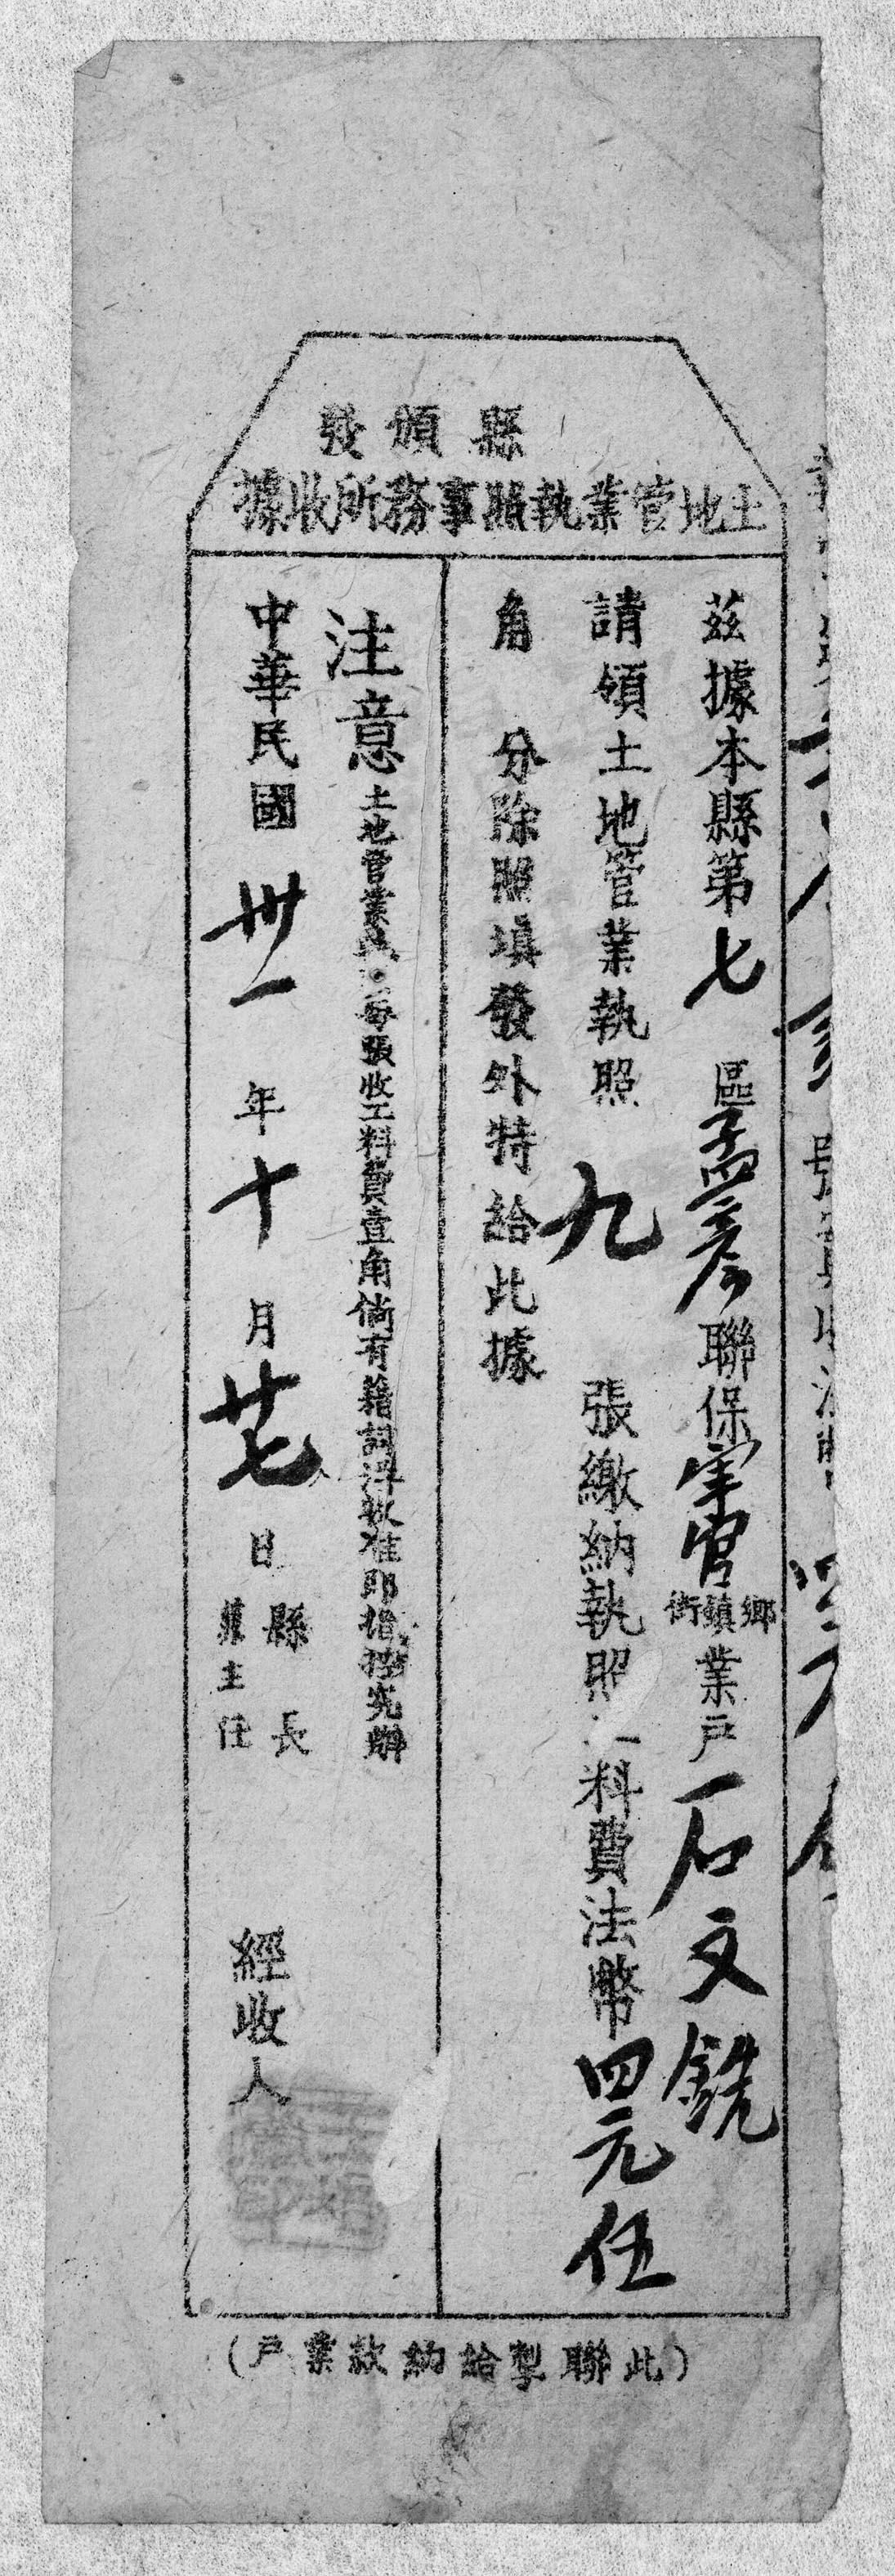 縣頒發
土地管業執照事務所收據
茲據本縣第七區孟彥聯保軍官鄉鎮街業戶石文銑
請領土地管業執照九張繳納執照 料費法幣四元伍
角 分除照填發外特給此據
注意
土地管業執 每張收工料費壹角倘有藉詞浮收准即指控究辦
中華民國卅一年十月廿七日
縣長
主任
經收人
(此聯掣給納款業戶)